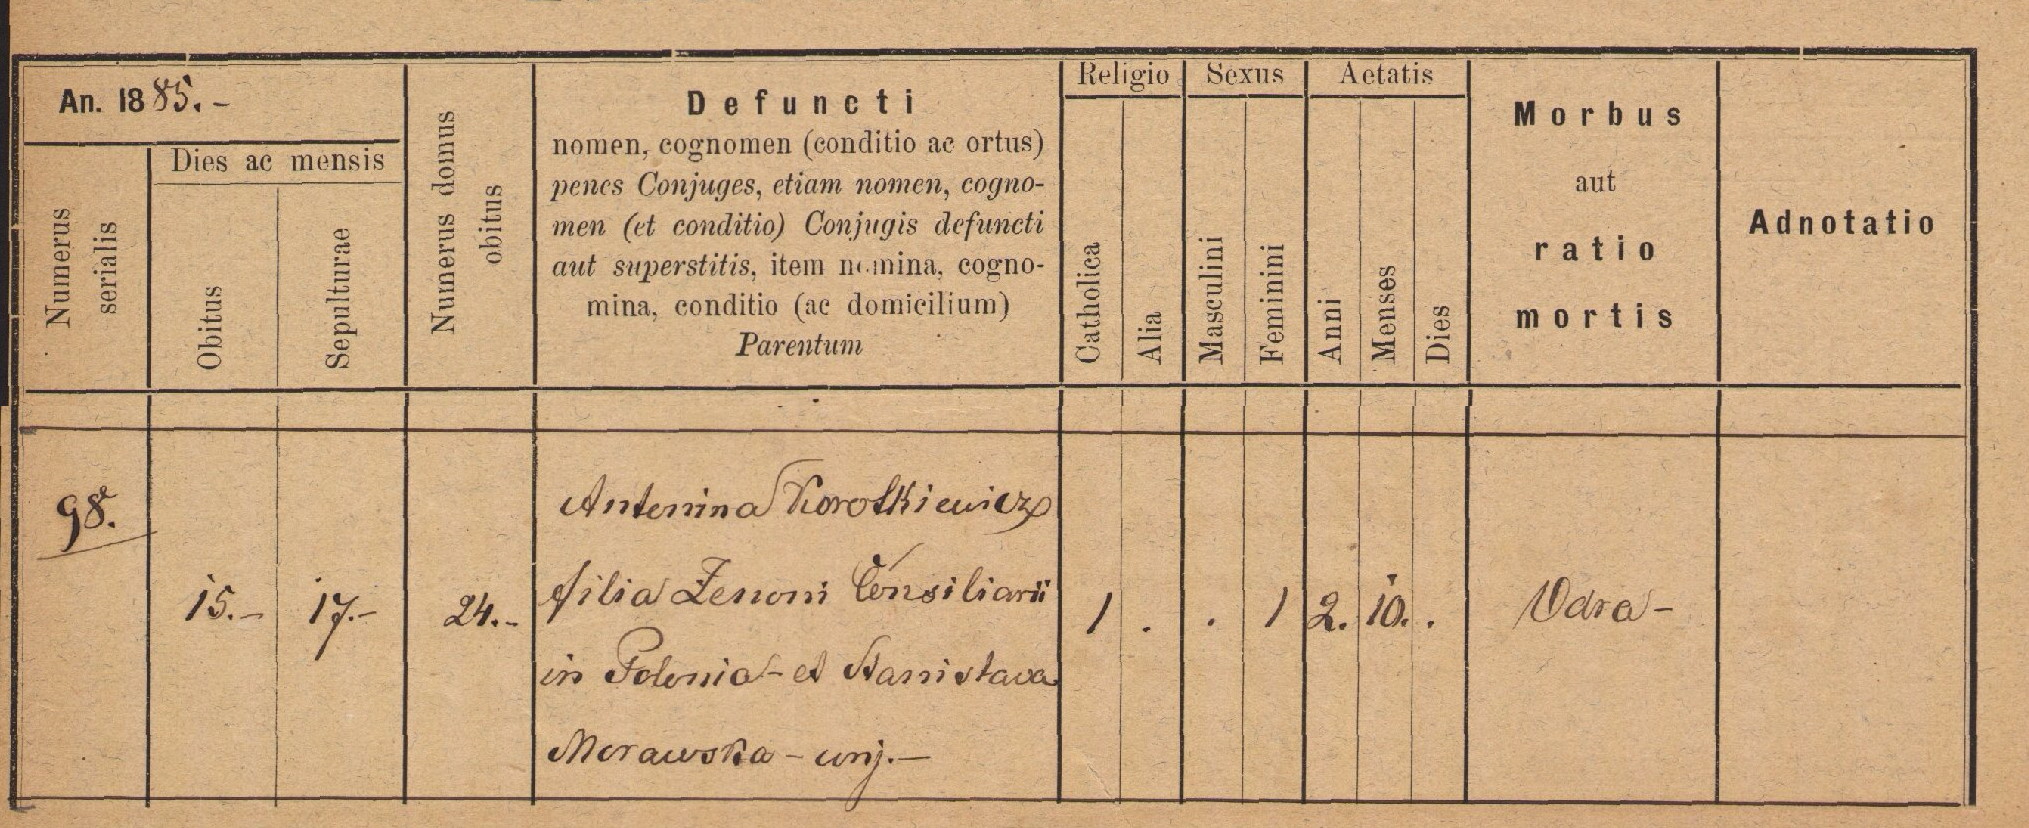 An. 1885.-
Dies ac mensis
Numerus serialis
Obitus
Sepulturae
Numerus domus obitus
Defuncti
nomen, cognomen (conditio ac ortus)
penes Conjuges, etiam nomen, cogno-
men (et conditio) Conjugis defuncti
aut superstitis, item nomina, cogno-
mina, conditio (ac domicilium)
Parentum
Religio
Catholica
Alia
Sexus
Masculini
Feminini
Aetatis
Anni
Menses
Dies
Morbus
aut
ratio
mortis
Adnotatio
98.
15.- 17.- 24.-
Antonina Korotkiewicz
filia Zenoni Consiliarii
in Polonia - et Stanislava
Morawska - conj.-
1 . . 1 2. 10. .
Odra-